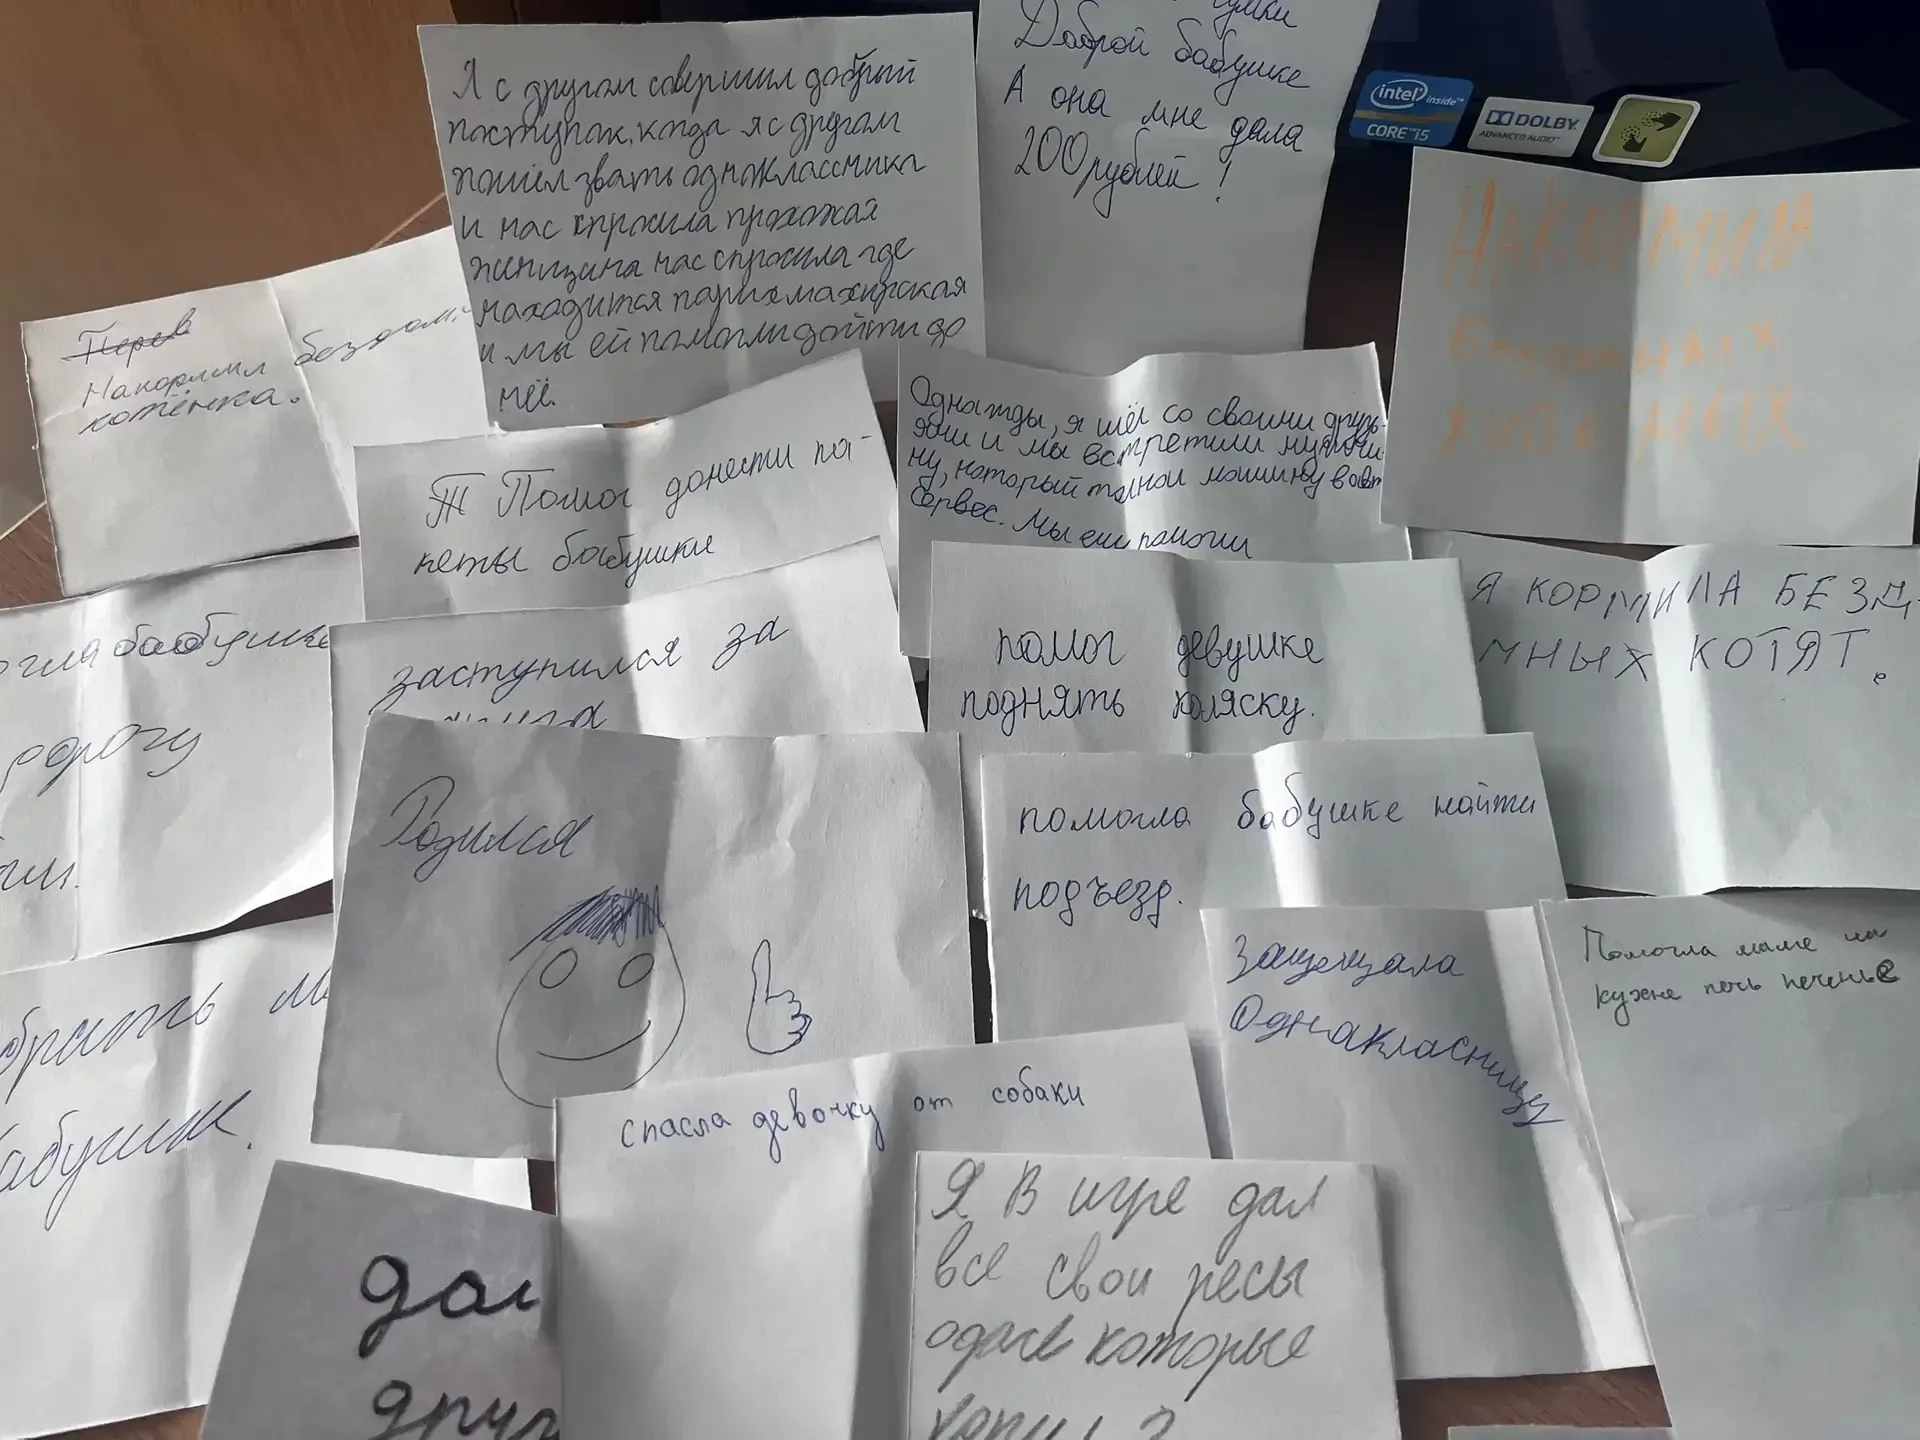 Я с другом совершил добрый
поступок, когда я с другом
пошёл звать одноклассника
и нас спросила прохожая
женщина нас спросила где
находится парикмахирская
и мы ей помогли дойти до
неё.
Доброй бабушке
А она мне дала
200 рублей!
intel inside™
CORE™ i5
DOLBY
ADVANCED AUDIO™
НАКОРМИЛА
бездомных
животных
Перев
Накормил бездом
котёнка.
Т Помог донести па-
кеты бабушки
Однажды, я шёл со своими друзь-
ями и мы встретили мужчи
ну, который толкал машину в
Сервес. Мы ему помогли
бабушке
дорогу
заступился за
помог девушке
поднять коляску.
Я КОРМИЛА БЕЗД
МНЫХ КОТЯТ.
Родился
помогла бабушке найти
подъезд.
Защещала
Однакласницу
Помогла маме на
кухне печь печенье
брать
бабушк.
спасла девочку от собаки
Я В игре дал
все свои ресы
которые